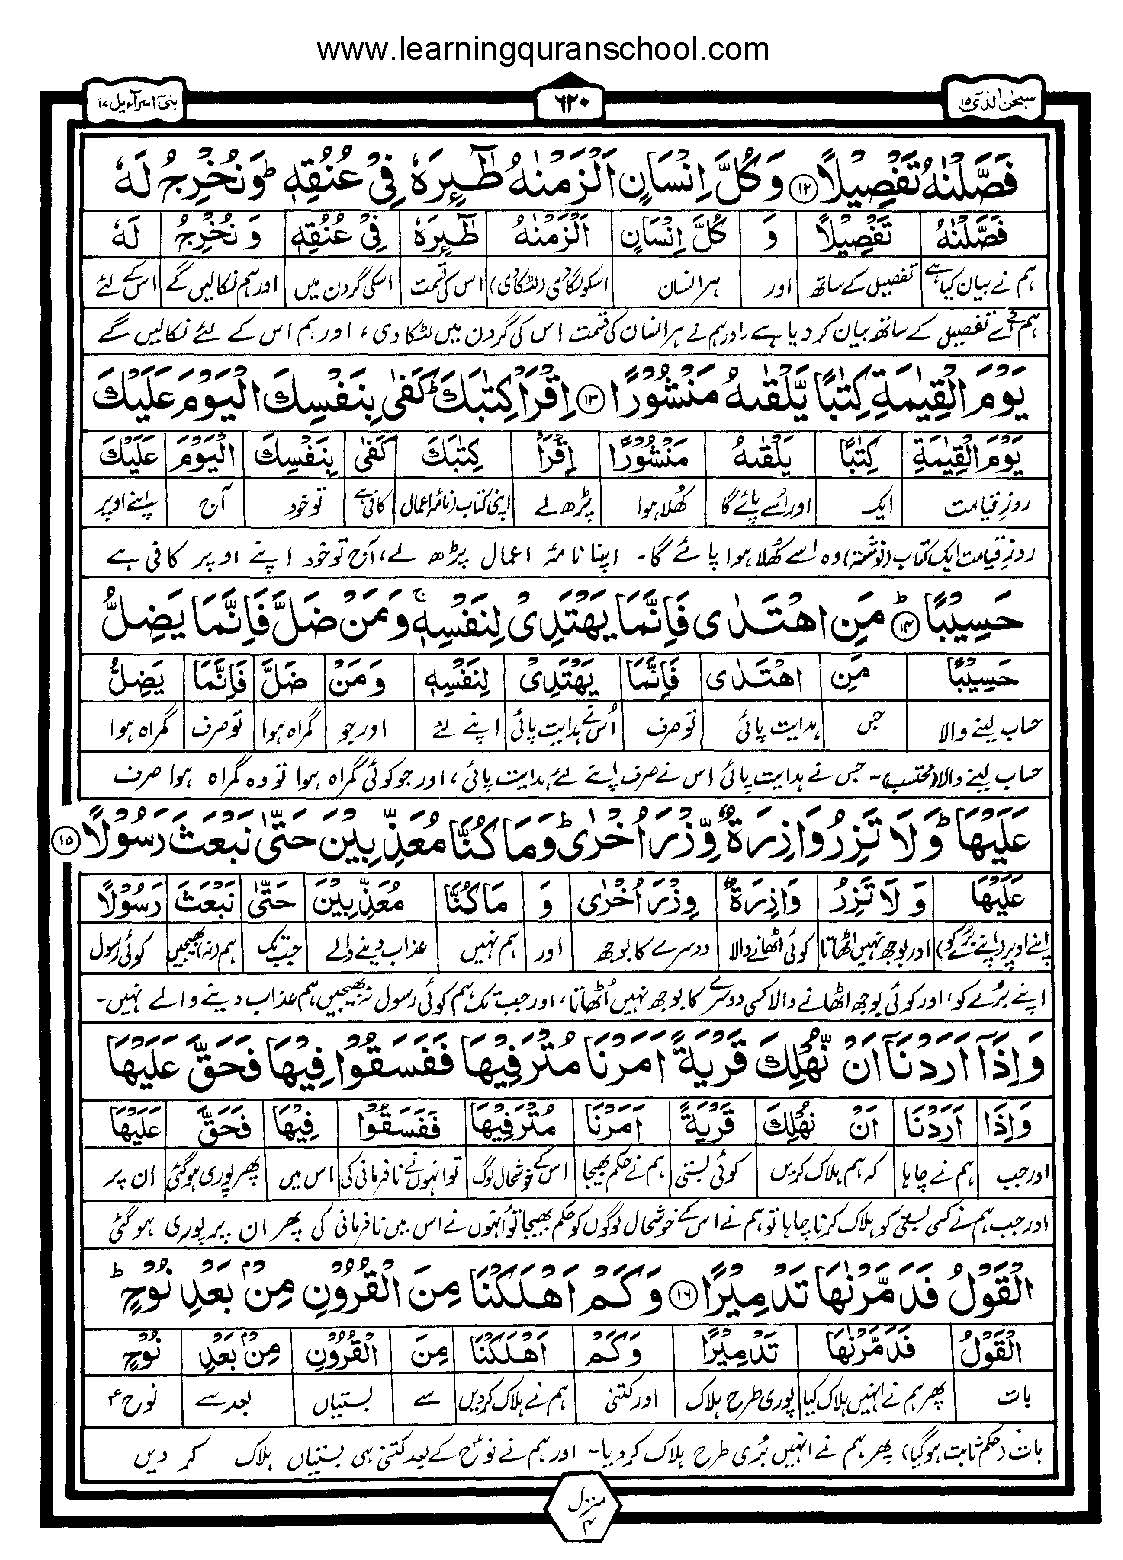 www.learningquranschool.com
سبحٰن الذی ۱۵
۶۲۰
بنیٓ اسرآءیل ۱۷
فَصَّلْنٰهُ تَفْصِیْلًا ﴿۱۲﴾ وَ كُلَّ اِنْسَانٍ اَلْزَمْنٰهُ طٰٓئِرَهٗ فِیْ عُنُقِهٖ ؕ وَ نُخْرِجُ لَهٗ
فَصَّلْنٰهُ تَفْصِیْلًا وَ كُلَّ اِنْسَانٍ اَلْزَمْنٰهُ طٰٓئِرَهٗ فِیْ عُنُقِهٖ وَ نُخْرِجُ لَهٗ
ہم نے بیان کیا ہے تفصیل کے ساتھ اور ہر انسان اسکو لگادی (لٹکادی) اس کی قسمت اسکی گردن میں اور ہم نکالیں گے اس کے لئے
ہم نے اسے تفصیل کے ساتھ بیان کر دیا ہے، اور ہم نے ہر انسان کی قسمت اس کی گردن میں لٹکا دی، اور ہم اس کے لئے نکالیں گے
یَوْمَ الْقِیٰمَةِ كِتٰبًا یَّلْقٰىهُ مَنْشُوْرًا ﴿۱۳﴾ اِقْرَاْ كِتٰبَكَ ؕ كَفٰی بِنَفْسِكَ الْیَوْمَ عَلَیْكَ
یَوْمَ الْقِیٰمَةِ كِتٰبًا یَلْقٰىهُ مَنْشُوْرًا اِقْرَاْ كِتٰبَكَ كَفٰی بِنَفْسِكَ الْیَوْمَ عَلَیْكَ
روزِ قیامت ایک اور اسے پائے گا کھلا ہوا پڑھ لے اپنی کتاب (نامۂ اعمال) کافی ہے تو خود آج اپنے اوپر
روزِ قیامت ایک کتاب (نوشتہ) وہ اسے کھلا ہوا پائے گا۔ اپنا نامۂ اعمال پڑھ لے، آج تو خود اپنے اوپر کافی ہے
حَسِیْبًا ﴿۱۴﴾ ؕ مَنِ اهْتَدٰی فَاِنَّمَا یَهْتَدِیْ لِنَفْسِهٖ ۚ وَ مَنْ ضَلَّ فَاِنَّمَا یَضِلُّ
حَسِیْبًا مَنِ اهْتَدٰی فَاِنَّمَا یَهْتَدِیْ لِنَفْسِهٖ وَ مَنْ ضَلَّ فَاِنَّمَا یَضِلُّ
حساب لینے والا جس ہدایت پائی تو صرف اس نے ہدایت پائی اپنے لئے اور جو گمراہ ہوا تو صرف گمراہ ہوا
حساب لینے والا (محتسب)۔ جس نے ہدایت پائی اس نے صرف اپنے لئے ہدایت پائی، اور جو کوئی گمراہ ہوا تو وہ گمراہ ہوا صرف
عَلَیْهَا ؕ وَ لَا تَزِرُ وَازِرَةٌ وِّزْرَ اُخْرٰی ؕ وَ مَا كُنَّا مُعَذِّبِیْنَ حَتّٰی نَبْعَثَ رَسُوْلًا ﴿۱۵﴾
عَلَیْهَا وَ لَا تَزِرُ وَازِرَةٌ وِزْرَ اُخْرٰی وَ مَا كُنَّا مُعَذِّبِیْنَ حَتّٰی نَبْعَثَ رَسُوْلًا
اپنے اوپر (اپنے بُرے کو) اور بوجھ نہیں اٹھاتا کوئی اٹھانے والا دوسرے کا بوجھ اور ہم نہیں عذاب دینے والے جب تک ہم نہ بھیجیں کوئی رسول
اپنے بُرے کو، اور کوئی بوجھ اٹھانے والا کسی دوسرے کا بوجھ نہیں اُٹھاتا، اور جب تک ہم کوئی رسول نہ بھیجیں ہم عذاب دینے والے نہیں۔
وَ اِذَاۤ اَرَدْنَاۤ اَنْ نُّهْلِكَ قَرْیَةً اَمَرْنَا مُتْرَفِیْهَا فَفَسَقُوْا فِیْهَا فَحَقَّ عَلَیْهَا
وَ اِذَا اَرَدْنَا اَنْ نُهْلِكَ قَرْیَةً اَمَرْنَا مُتْرَفِیْهَا فَفَسَقُوْا فِیْهَا فَحَقَّ عَلَیْهَا
اور جب ہم نے چاہا کہ ہم ہلاک کریں کوئی بستی ہم نے حکم بھیجا اس کے خوشحال لوگ تو انہوں نے نافرمانی کی اس میں پھر پوری ہوگئی ان پر
اور جب ہم نے کسی بستی کو ہلاک کرنا چاہا تو ہم نے اس کے خوشحال لوگوں کو حکم بھیجا تو انہوں نے اس میں نافرمانی کی پھر ان پر پوری ہو گئی
الْقَوْلُ فَدَمَّرْنٰهَا تَدْمِیْرًا ﴿۱۶﴾ وَ كَمْ اَهْلَكْنَا مِنَ الْقُرُوْنِ مِنْۢ بَعْدِ نُوْحٍ ؕ
الْقَوْلُ فَدَمَّرْنٰهَا تَدْمِیْرًا وَكَمْ اَهْلَكْنَا مِنَ الْقُرُوْنِ مِنْۢ بَعْدِ نُوْحٍ
بات پھر ہم نے انہیں ہلاک کیا پوری طرح ہلاک اور کتنی ہم نے ہلاک کردیں سے بستیاں بعد سے نوح ؑ
بات (حکم ثابت ہوگیا) پھر ہم نے انہیں بُری طرح ہلاک کردیا۔ اور ہم نے نوحؑ کے بعد کتنی ہی بستیاں ہلاک کر دیں
منزل ۴